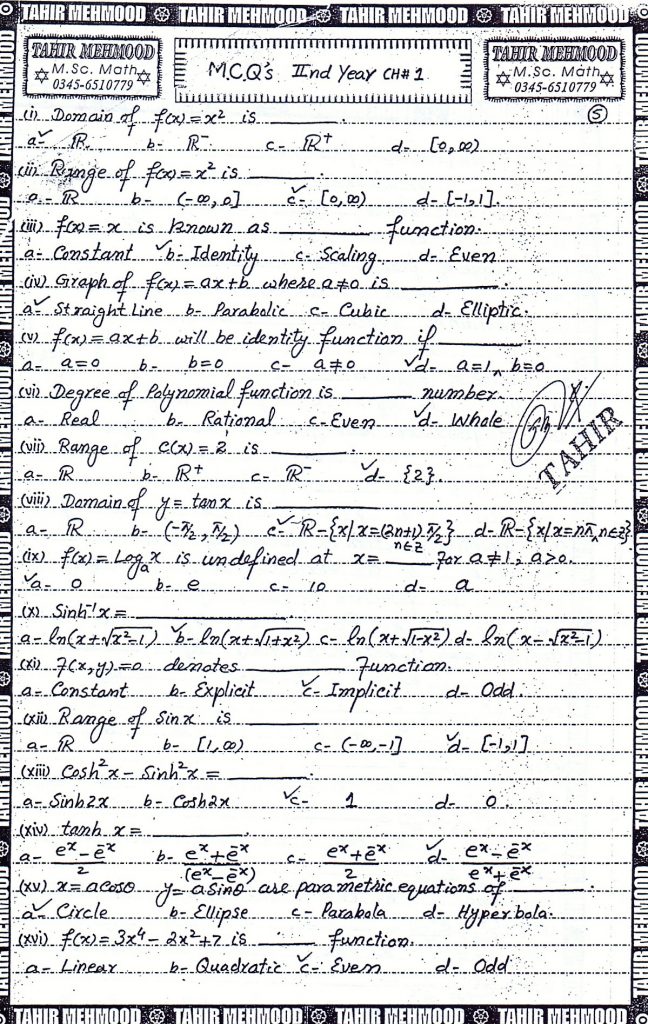 TAHIR MEHMOOD TAHIR MEHMOOD TAHIR MEHMOOD TAHIR MEHMOOD
TAHIR MEHMOOD
M.Sc. Math
0345-6510779
M.C.Q's IInd Year CH# 1
TAHIR MEHMOOD
M.Sc. Math
0345-6510779
5
(i) Domain of f(x) = x² is ______.
a✓ ℝ b- ℝ⁻ c- ℝ⁺ d- [0,∞)
(ii) Range of f(x) = x² is ______.
a- ℝ b- (-∞,0] ✓c- [0,∞) d- [-1,1].
(iii) f(x) = x is known as ______ function.
a- Constant ✓b- Identity c- Scaling d- Even
(iv) Graph of f(x) = ax+b where a≠0 is ______.
a✓ Straight Line b- Parabolic c- Cubic d- Elliptic.
(v) f(x) = ax+b will be identity function if ______
a- a=0 b- b=0 c- a≠0 ✓d- a=1, b=0
(vi) Degree of Polynomial function is ______ number.
a- Real b- Rational c- Even ✓d- Whole
(vii) Range of c(x) = 2 is ______.
a- ℝ b- ℝ⁺ c- ℝ⁻ ✓d- {2}.
TAHIR
(viii) Domain of y = tanx is ______
a- ℝ b- (-π/2, π/2) c✓ ℝ-{x|x=(2n+1)π/2} n∈z d- ℝ-{x|x=nπ∧n∈z}
(ix) f(x) = Logₐx is undefined at x= ____ for a≠1, a>0.
✓a- 0 b- e c- 10 d- a
(x) Sinh⁻¹x = ______
a- ln(x+√x²-1) ✓b- ln(x+√1+x²) c- ln(x+√1-x²) d- ln(x-√x²-1)
(xi) f(x,y)=0 denotes ______ function.
a- Constant b- Explicit ✓c- Implicit d- Odd.
(xii) Range of Sinx is ______
a- ℝ b- [1,∞) c- (-∞,-1] ✓d- [-1,1]
(xiii) Cosh²x - Sinh²x = ______.
a- Sinh2x b- Cosh2x ✓c- 1 d- 0.
(xiv) tanh x = ______.
a- eˣ-e⁻ˣ/2 b- eˣ+e⁻ˣ/(eˣ-e⁻ˣ) c- eˣ+e⁻ˣ/2 ✓d- eˣ-e⁻ˣ/eˣ+e⁻ˣ
(xv) x=acosθ y=asinθ are parametric equations of ______.
a✓ Circle b- Ellipse c- Parabola d- Hyperbola.
(xvi) f(x) = 3x⁴-2x²+7 is ______ function.
a- Linear b- Quadratic ✓c- Even d- Odd
TAHIR MEHMOOD TAHIR MEHMOOD TAHIR MEHMOOD TAHIR MEHMOOD